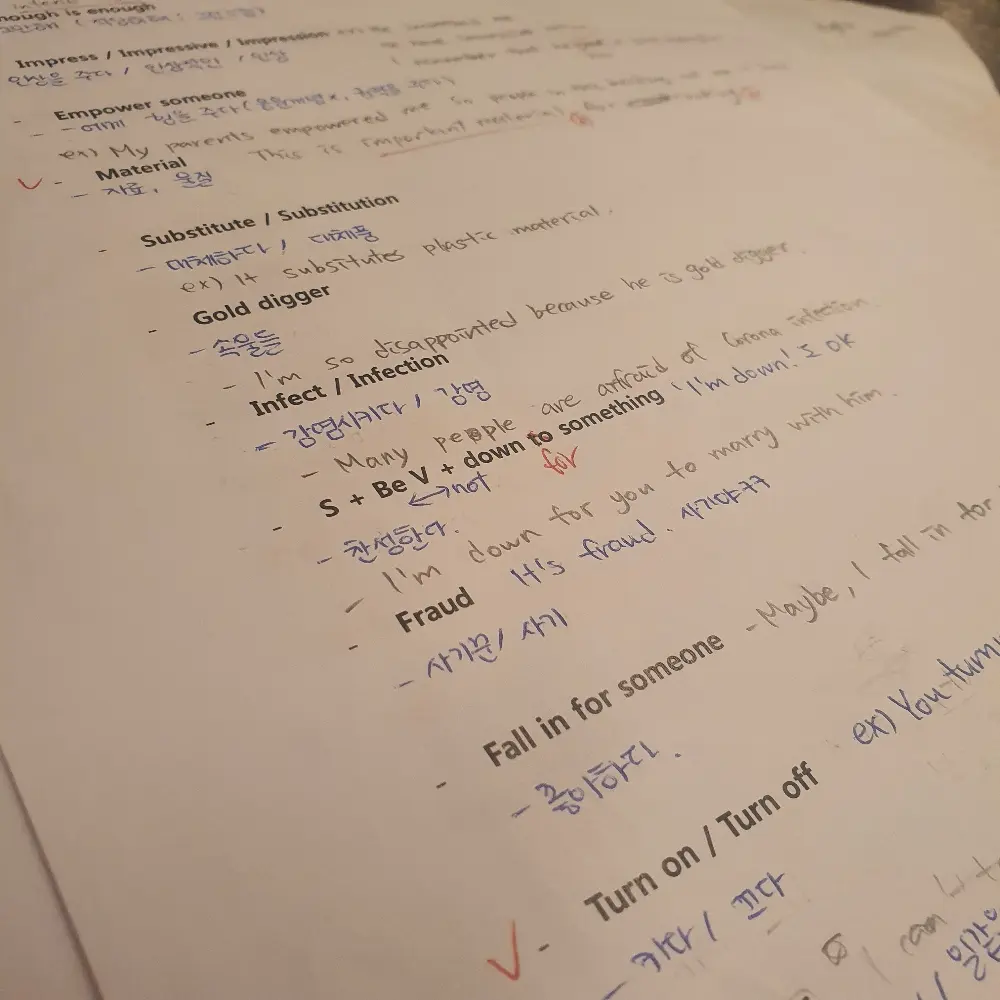 nough is enough
Impress / Impressive / Impression
인상을 주다 / 인상적인 / 인상
- Empower someone
- ~에게 힘을 주다
ex) My parents empowered me
- Material This is important material for
- 자료, 물질
- Substitute / Substitution
- 대체하다 / 대체품
ex) It substitutes plastic material.
- Gold digger
- 속물들
- I'm so disappointed because he is gold digger.
- Infect / Infection
- 감염시키다 / 감영
- Many people are arfraid of Corona infection.
- S + Be V + down to something 'I'm down!' 도 OK
for
↔ not
- 찬성한다.
- I'm down for you to marry with him.
- Fraud It's fraud. 사기야ㅋㅋ
- 사기꾼 / 사기
- Fall in for someone - Maybe, I fall in for
- 좋아하다.
- Turn on / Turn off ex) You turn
- 키다 / 끄다
I can